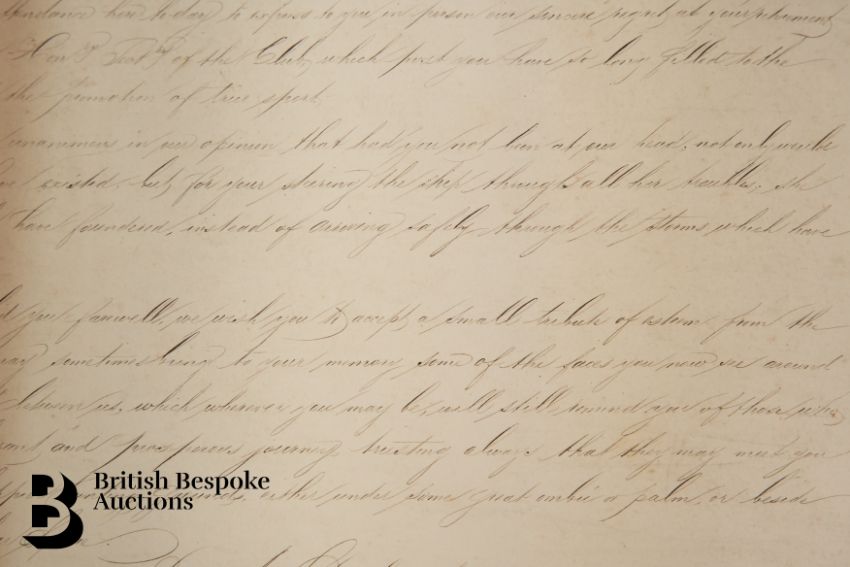 here to day to express to you in person our sincere regret at your retirement
Hon.y Sec.y of the Club, which post you have so long filled to the
the promotion of true sport.
unanimous in our opinion that had you not been at our head, not only would
existed, but, for your steering the ship through all her troubles, she
have foundered, instead of arriving safely through the storms which have
you farewell, we wish you to accept a small tribute of esteem from the
may sometimes bring to your memory some of the faces you now see around
between us, which wherever you may be, will still remind you of those who
and prosperous journey, trusting always that they may meet you
either under some great a palm, or beside
British Bespoke
Auctions